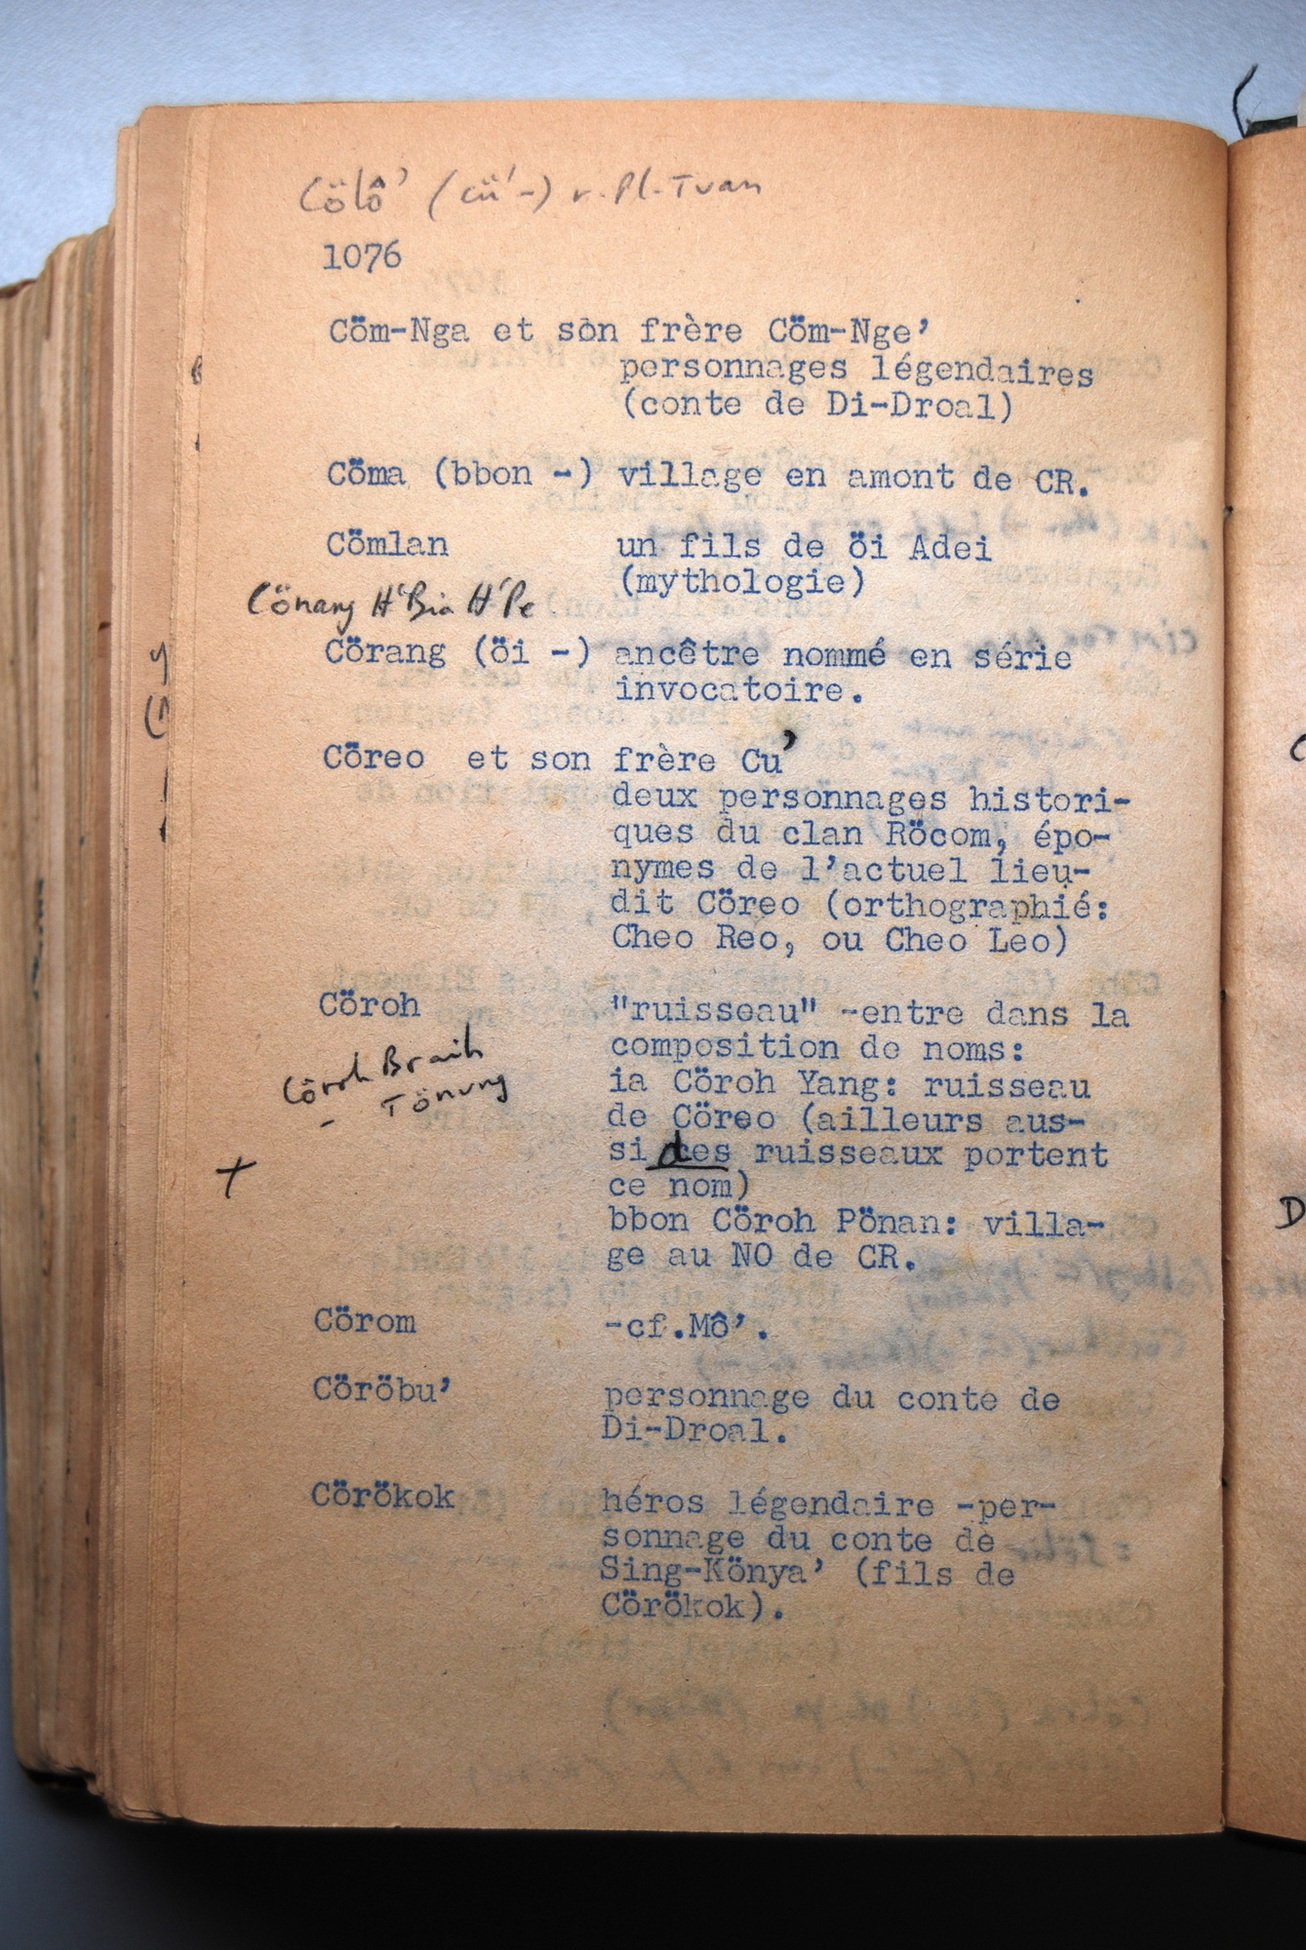 Cölô' (cü'-) v. Pl. Tuan
1076
Cöm-Nga et son frère Cöm-Nge'
personnages légendaires
(conte de Di-Droal)
Cöma (bbon -) village en amont de CR.
Cömlan un fils de öi Adei
(mythologie)
Cönang H'Bia H'Pe
Cörang (öi -) ancêtre nommé en série
invocatoire.
Cöreo et son frère Cu'
deux personnages histori-
ques du clan Röcom, épo-
nymes de l'actuel lieu-
dit Cöreo (orthographié:
Cheo Reo, ou Cheo Leo)
Cöroh "ruisseau" -entre dans la
composition de noms:
ia Cöroh Yang: ruisseau
de Cöreo (ailleurs aus-
si des ruisseaux portent
ce nom)
bbon Cöroh Pönan: villa-
ge au NO de CR.
Cöroh Braih
Tönung
+
Cörom -cf.Mô'.
Cöröbu' personnage du conte de
Di-Droal.
Cörökok héros légendaire -per-
sonnage du conte de
Sing-Könya' (fils de
Cörökok).